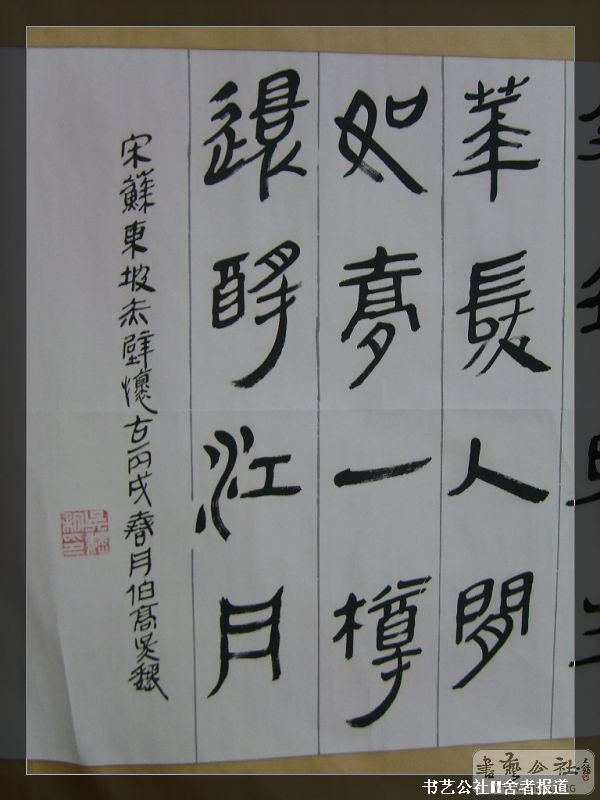 華髮人間
如夢一樽
還酹江月
宋蘇東坡赤壁懷古丙戌春月伯高吳
書藝公社
书艺公社II舍者报道